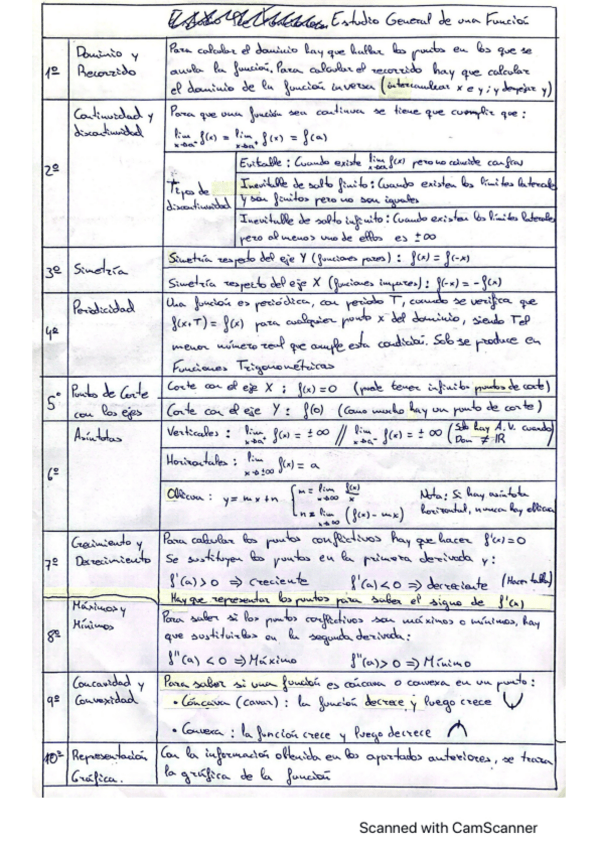 Estudio General de una Función
1º Dominio y Recorrido
Para calcular el dominio hay que hallar los puntos en los que se
anula la función. Para calcular el recorrido hay que calcular
el dominio de la función inversa (intercambiar x e y; y despejar y)
2º Continuidad y discontinuidad
Para que una función sea continua se tiene que cumplir que:
lim x→a⁻ f(x) = lim x→a⁺ f(x) = f(a)
Tipos de discontinuidad
Evitable: Cuando existe lim x→a f(x) pero no coincide con f(a)
Inevitable de salto finito: Cuando existen los límites laterales
y son finitos pero no son iguales
Inevitable de salto infinito: Cuando existen los límites laterales
pero al menos uno de ellos es ±∞
3º Simetría
Simetría respecto del eje Y (funciones pares): f(x) = f(-x)
Simetría respecto del eje X (funciones impares): f(-x) = -f(x)
4º Periodicidad
Una función es periódica, con periodo T, cuando se verifica que
f(x+T) = f(x) para cualquier punto x del dominio, siendo T el
menor número real que cumple esta condición. Solo se produce en
Funciones Trigonométricas
5º Punto de Corte con los ejes
Corte con el eje X: f(x)=0 (puede tener infinitos puntos de corte)
Corte con el eje Y: f(0) (como mucho hay un punto de corte)
6º Asíntotas
Verticales: lim x→a⁺ f(x) = ±∞ // lim x→a⁻ f(x) = ±∞ (Solo hay A.V. cuando Dom ≠ IR)
Horizontales: lim x→±∞ f(x) = a
Oblicua: y = mx + n { m = lim x→∞ f(x)/x
n = lim x→∞ (f(x) - mx)
Nota: Si hay asíntota
horizontal, nunca hay oblicua
7º Crecimiento y Decrecimiento
Para calcular los puntos conflictivos hay que hacer f'(x)=0
Se sustituyen los puntos en la primera derivada y:
f'(a)>0 ⇒ creciente f'(a)<0 ⇒ decreciente (Hacer tabla)
Hay que representar los puntos para saber el signo de f'(x)
8º Máximos y Mínimos
Para saber si los puntos conflictivos son máximos o mínimos, hay
que sustituirlos en la segunda derivada:
f''(a) < 0 ⇒ Máximo f''(a) > 0 ⇒ Mínimo
9º Concavidad y Convexidad
Para saber si una función es cóncava o convexa en un punto:
• Cóncava (cavar): la función decrece y luego crece
• Convexa: la función crece y luego decrece
10º Representación Gráfica.
Con la información obtenida en los apartados anteriores, se traza
la gráfica de la función
Scanned with CamScanner